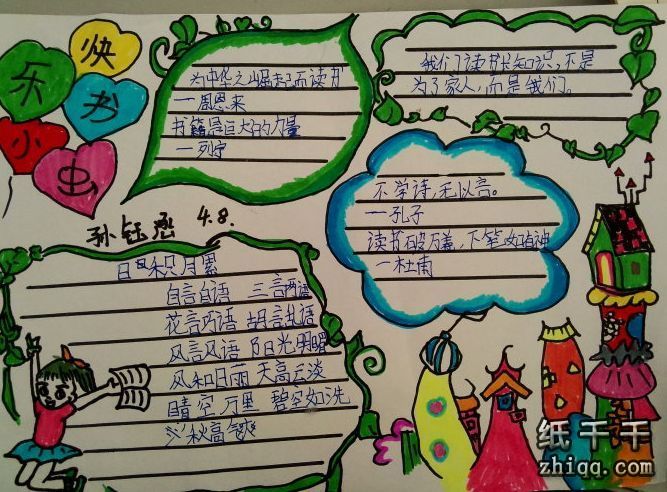 快乐
小书虫
为中华之崛起而读书
—周恩来
书籍是巨大的力量
—列宁
我们读书长知识,不是
为了家人,而是我们。
不学诗,无以言。
—孔子
读书破万卷,下笔如有神
—杜甫
孙钰 4.8.
日积月累
自言自语 三言两语
花言巧语 胡言乱语
风言风语 阳光明媚
风和日丽 天高云淡
晴空万里 碧空如洗
秋高气爽
纸千千
zhiqq.com